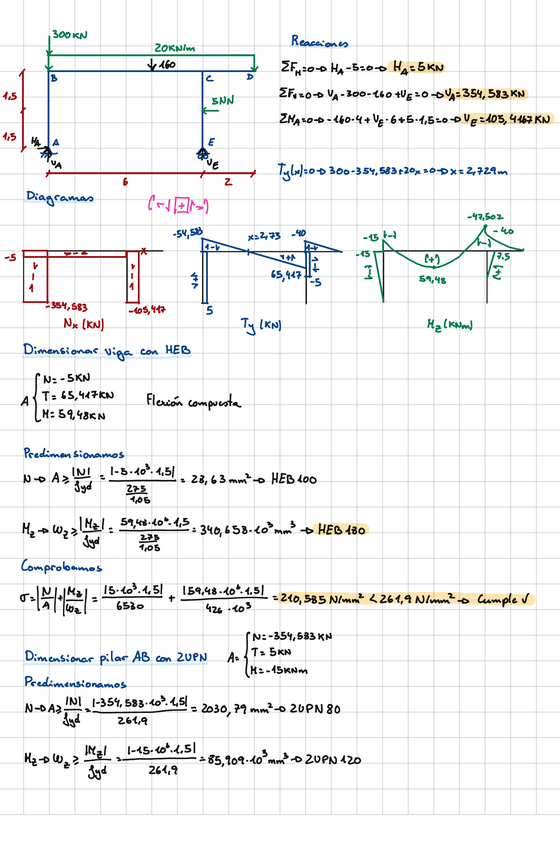 300KN
Reacciones
20KN/m
160
ΣF_H=0→ H_A-5=0→ H_A=5KN
B
C
D
1,5
5NN
ΣF_V=0→ V_A-300-160+V_E=0→ V_A=354,583KN
1,5
H_A
A
E
ΣM_A=0→ -160·4+V_E·6+5·1,5=0→ V_E=105,4167KN
V_A
V_E
6
2
Ty(x)=0→ 300-354,583+20x=0→ x=2,729m
Diagramas
(-↑[+]↓-)
-5
-354,583
-105,417
Nx (KN)
-54,583
x=2,73
-40
65,417
-5
5
Ty (KN)
-47,502
-15
-40
-15
(+)
7.5
59,48
Mz (KNm)
Dimensionar viga con HEB
A { N=-5KN
T= 65,417KN
M= 59,48KN
Flexión compuesta
Predimensionamos
N→ A ≥ |N|/fyd = |-5·10³·1,5| / (275/1,05) = 28,63 mm² → HEB 100
Mz → Wz ≥ |Mz|/fyd = 59,48·10⁶·1,5 / (275/1,05) = 340,658·10³ mm³ → HEB 180
Comprobamos
σ=|N/A|+|Mz/Wz| = |15·10³·1,5|/6530 + |159,48·10⁶·1,5|/426·10³ = 210,585 N/mm² < 261,9 N/mm² → Cumple √
Dimensionar pilar AB con 2UPN A= { N=-354,583KN
T= 5KN
M=-15KNm
Predimensionamos
N→ A ≥ |N|/fyd = |-354,583·10³·1,5|/261,9 = 2030,79 mm² → 2UPN 80
Mz → Wz ≥ |Mz|/fyd = |-15·10⁶·1,5|/261,9 = 85,909·10³ mm³ → 2UPN 120